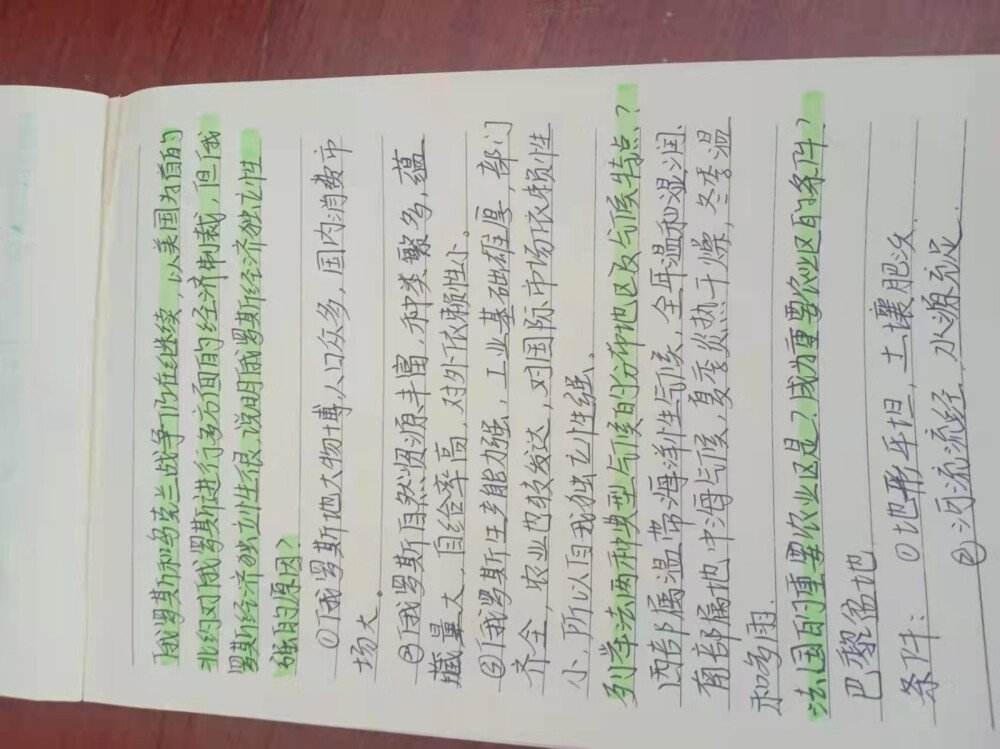 俄罗斯和乌克兰战争仍在继续,以美国为首的
北约对俄罗斯进行多方面的经济制裁,但俄
罗斯经济独立性很,说明俄罗斯经济独立性
强的原因?
①俄罗斯地大物博,人口众多,国内消费市
场大。
②俄罗斯自然资源丰富,种类繁多,蕴
藏量大,自给率高,对外依赖性小。
③俄罗斯生产能力强,工业基础雄厚,部门
齐全,农业也较发达,对国际市场依赖性
小,所以自我独立性强、
列举法两种典型气候的分布地区及气候特点?
西部属温带海洋性气候,全年温和湿润
南部属地中海气候,夏季炎热干燥,冬季温
和多雨.
法国的重要农业区是?成为重要农业区的条件?
巴黎盆地
条件:①地形平坦,土壤肥沃
②河流流经,水源充足.